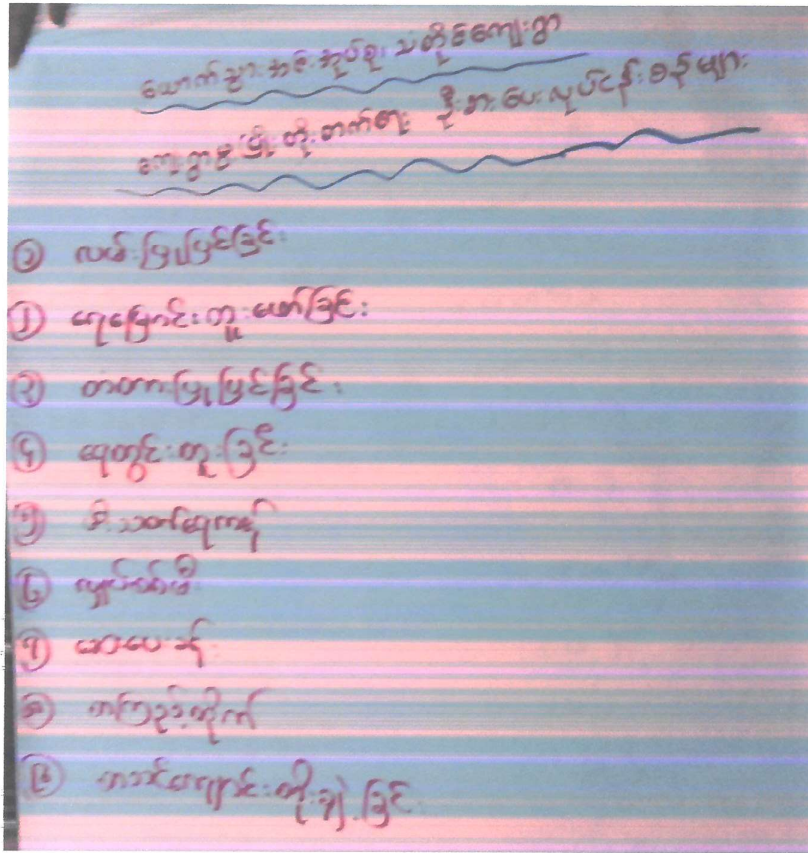 ယောက်ျားအစုအုပ်စု၊ သံတိုင်ကျေးရွာ
ကျေးရွာဖွံ့ဖြိုးတိုးတက်ရေး ဦးစားပေးလုပ်ငန်းစဉ်များ
၁ လမ်းပြုပြင်ခြင်း
၂ ရေမြောင်းတူးဖော်ခြင်း
၃ တံတားပြုပြင်ခြင်း
၄ ရေတွင်းတူးခြင်း
၅ မီးသတ်ရေကန်
၆ လျှပ်စစ်မီး
၇ ဆေးပေးခန်း
၈ စာကြည့်တိုက်
၉ စာသင်ကျောင်းတိုးချဲ့ခြင်း